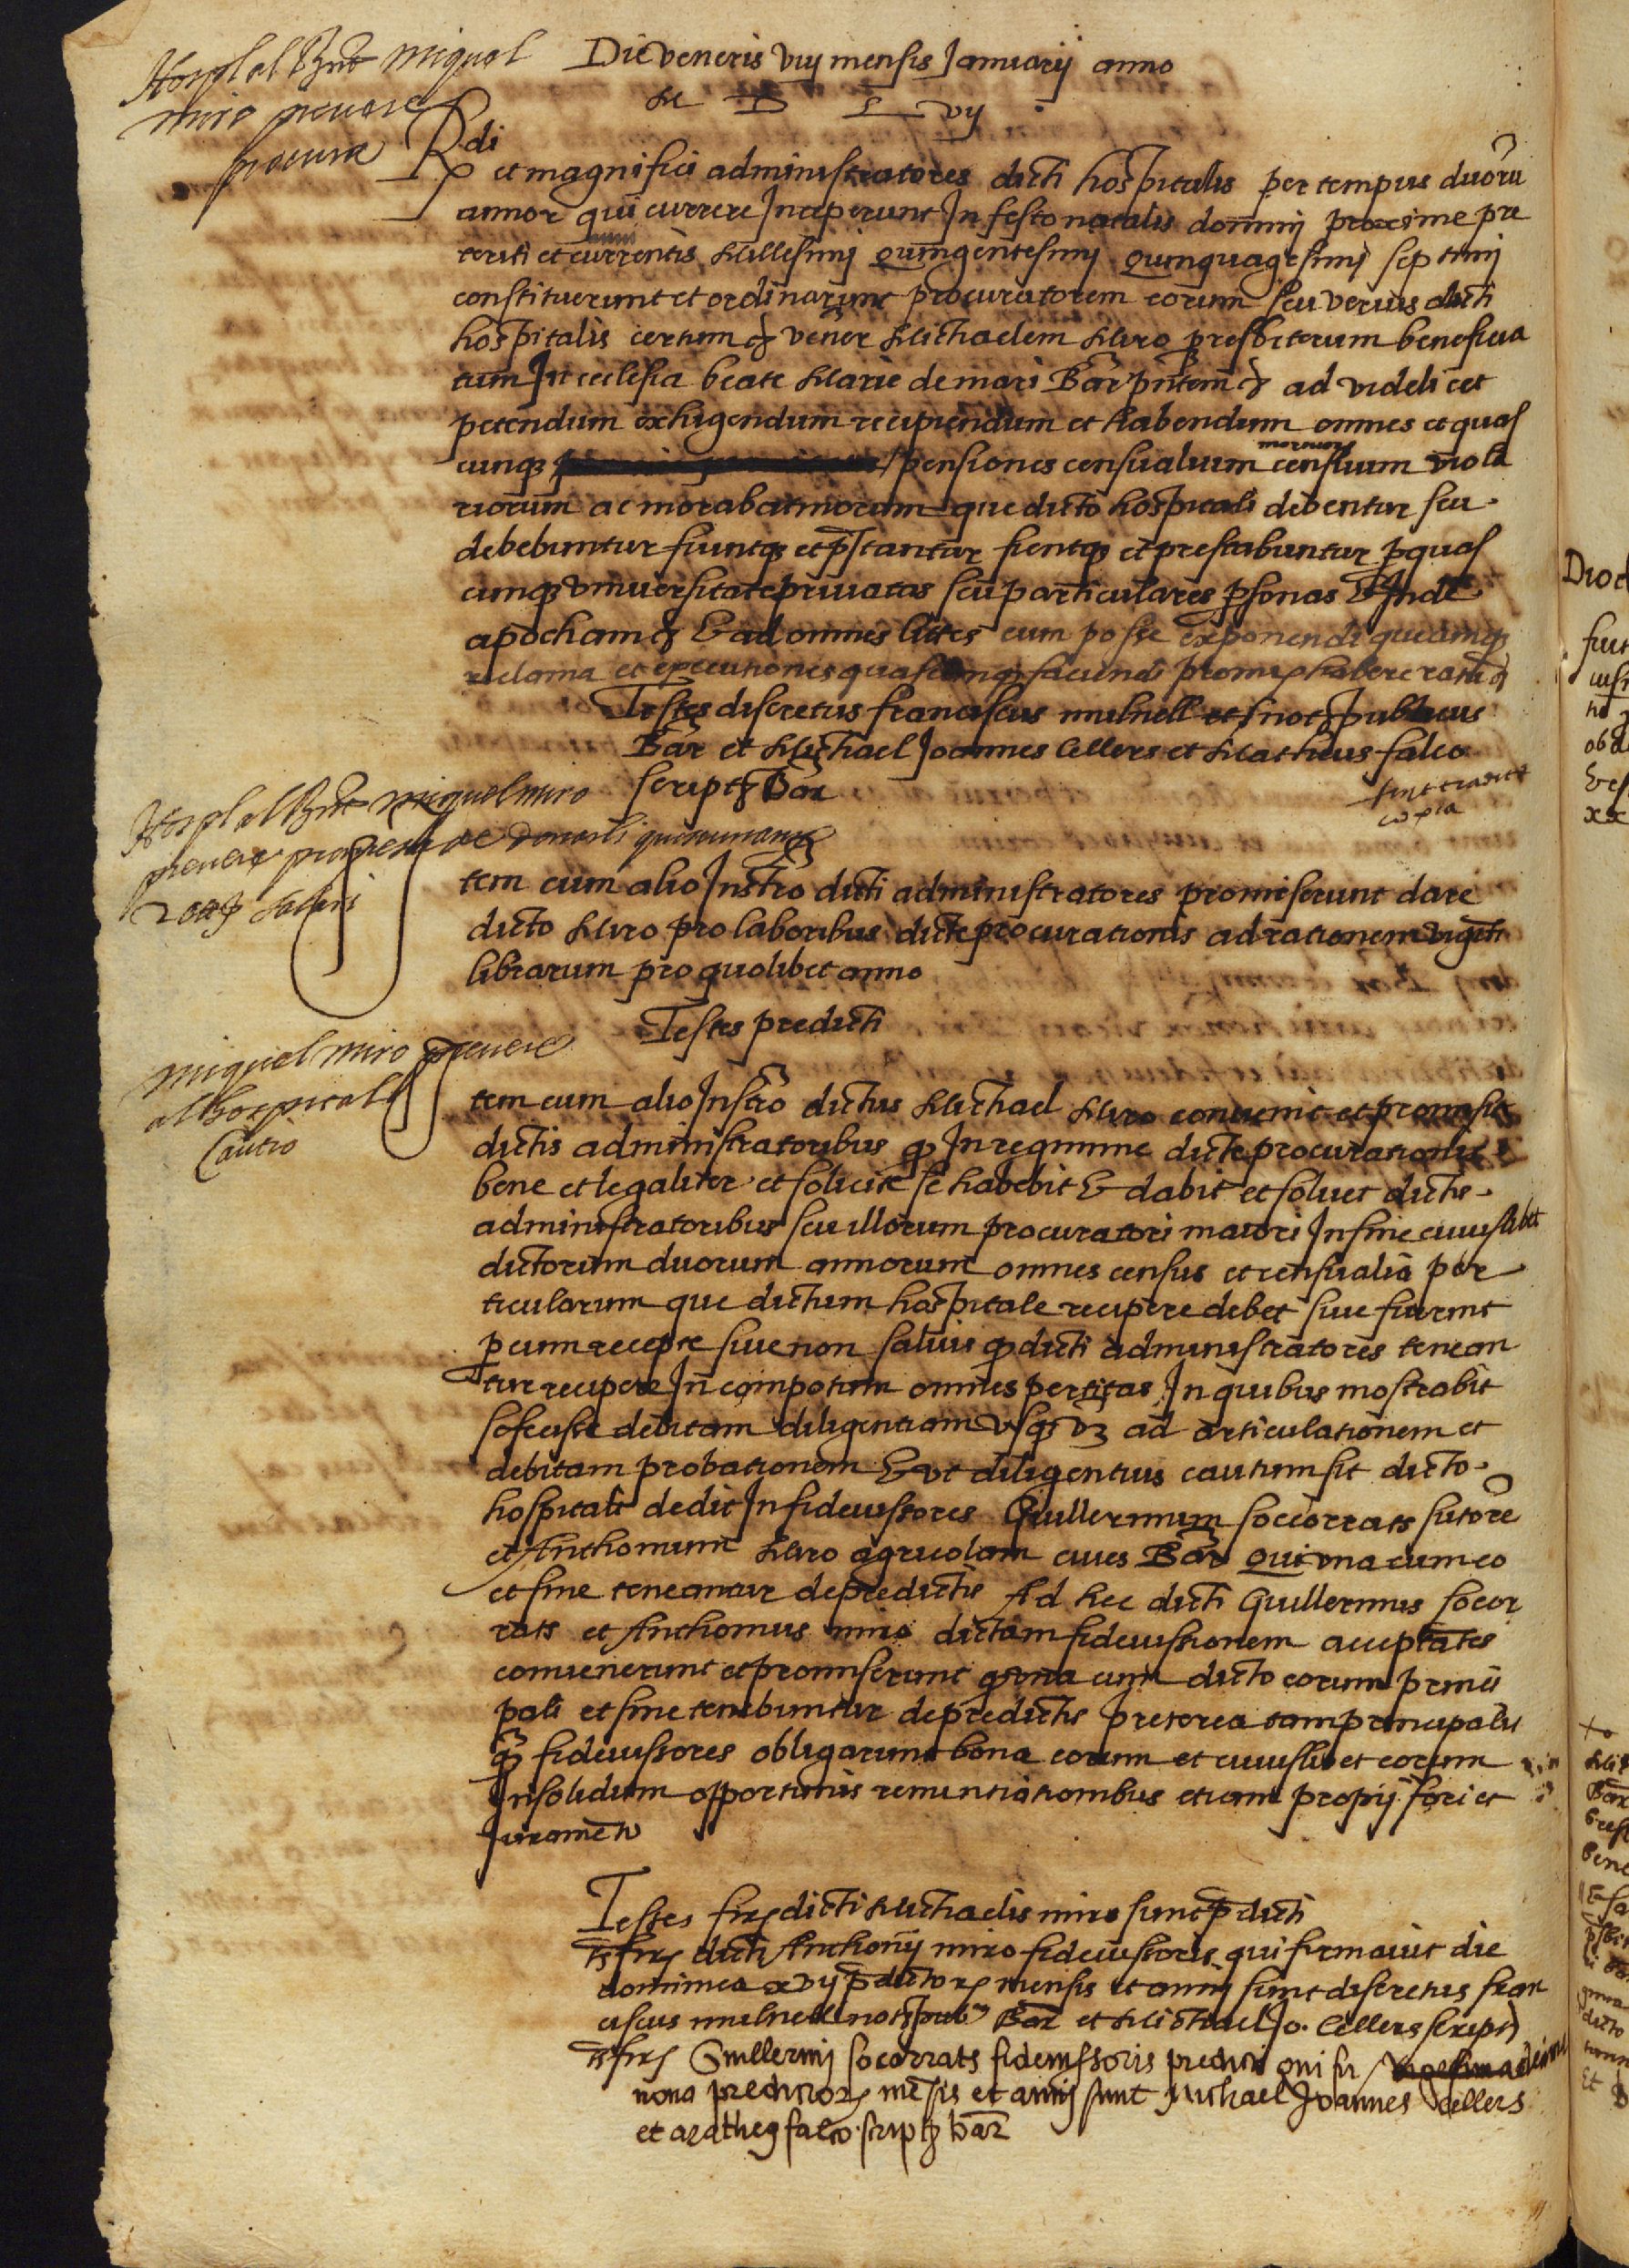 Die veneris viij mensis Januarij anno
M D L vij
Hospl al Rnt Miquel
miro prevere
procura
Rdi et magnifici administratores dicti hospitalis per tempus duoru
annor qui currere Inceperunt In festo natalis dominj proxime pre
teriti et anni currentis Millesimj quingentesimj quinquagesimj septimj
constituerunt et ordinarunt procuratorem eorum seu verius dicti
hospitalis certum & vener Michaelem Miro presbiterum beneficia
tum In ecclesia beate Marie de mari Bar pntem & ad videlicet
petendum exhigendum recipiendum et habendum omnes et quas
cunq pensiones censualium censuum viola
riorum ac morabatinorum que dicto hospitali debentur seu
debebuntur fiuntq et pstantur fientq et prestabuntur p quas
cunq universitates privatas seu particulares psonas Et Inde
apocham & Et ad omnes lites cum posse exponendi quecumq
reclama et executiones quascunq faciendi promi habere ratu &
Testes discretus Franciscus mulnell not publicus
Bar et Michael Joannes Cellers et Matheus falco
script Bar
copia
Hospl al Rnt miquel miro
prevere
salari
Item cum alio Instro dicti administratores promiserunt dare
dicto Miro pro laboribus dicte procurationis ad rationem viginti
librarum pro quolibet anno
Testes predicti
Miquel miro prevere
al hospital
Cautio
Item cum alio Instro dictus Michael Miro convenit et promisit
dictis administratoribus q In regimine dicte procurationis
bene et legaliter et solicite se habebit Et dabit et solvet dictis
administratoribus seu illorum procuratori maiori In fine cuiuslibet
dictorum duorum annorum omnes census et censualia par
ticularum que dictum hospitale recipere debet sive fuerint
p eum recepte sive non salvis q dicti administratores tenean
tur recipere In compotum omnes partitas In quibus mostrabit
se fecisse debitam diligentiam usq vz ad articulationem et
debitam probationem Et ut diligentius cautum sit dicto
hospitali dedit In fideiussores Guillermum soccorrats sutore
et Anthonium Miro agricolam cives Bar qui una cum eo
et sine teneantur de predictis Ad hec dicti Guillermus socor
rats et Anthonius miro dictam fideiussionem acceptates
convenerunt et promiserunt q una cum dicto eorum princi
pali et sine tenebuntur de predictis Preterea tam principalis
q fideiussores obligarunt bona eorum et cuiuslibet eorum
Insolidum opportunis renuntiationibus etiam proprij fori et
Jurameto
Testes firm dicti Michaelis miro sunt pdicti
Ts firm dicti Anthonij miro fideiussoris qui firmavit die
dominica xvij pdictor mensis et annj sunt discretus fran
ciscus mulnell not pub Bar et Michael Jo. Cellers script
Ts firm Guillermj socorrats fideiussoris predicti qui fir
nona predictor mesis et annj sunt Michael Joannes Cellers
et Matheus falco script bar